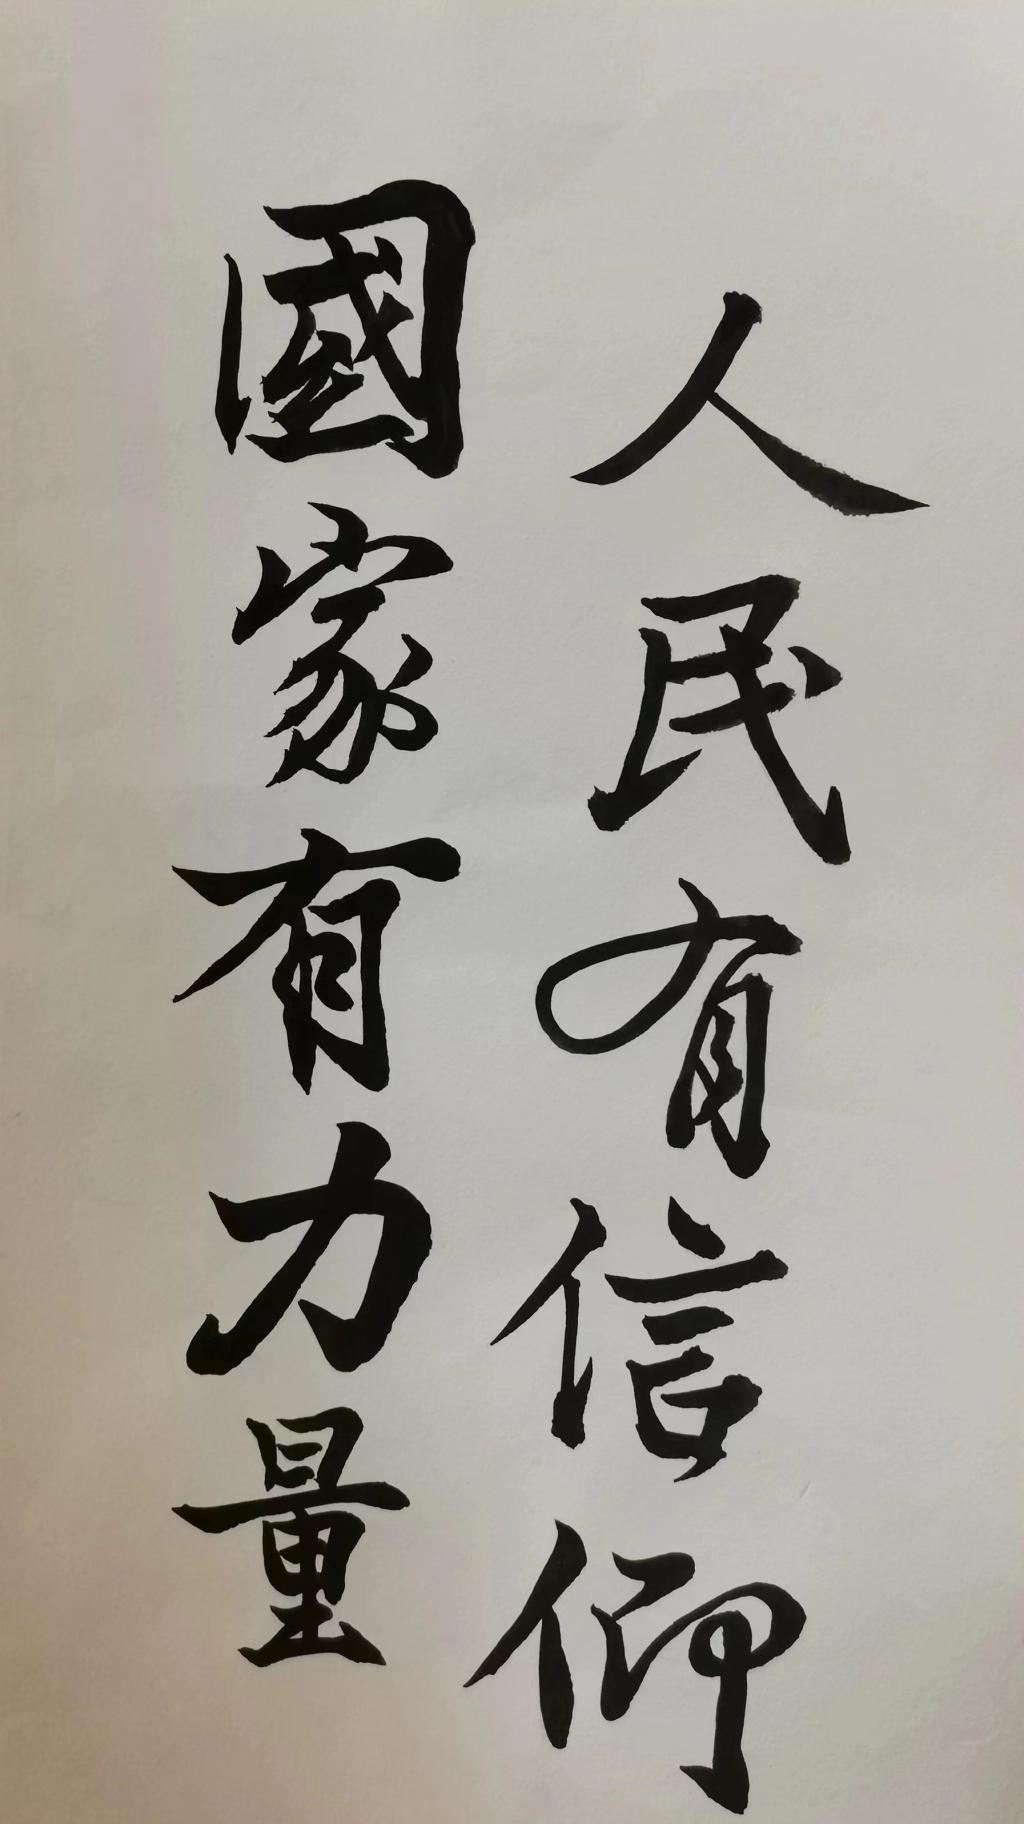 人民有信仰
國家有力量